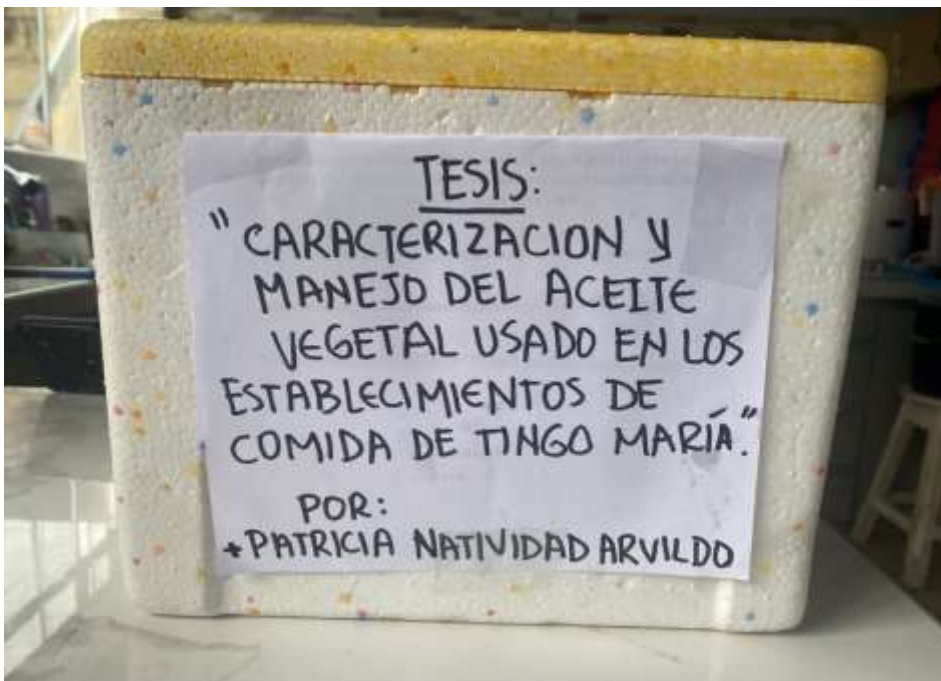 TESIS:
"CARACTERIZACION Y
MANEJO DEL ACEITE
VEGETAL USADO EN LOS
ESTABLECIMIENTOS DE
COMIDA DE TINGO MARÍA."
POR:
+PATRICIA NATIVIDAD ARVILDO